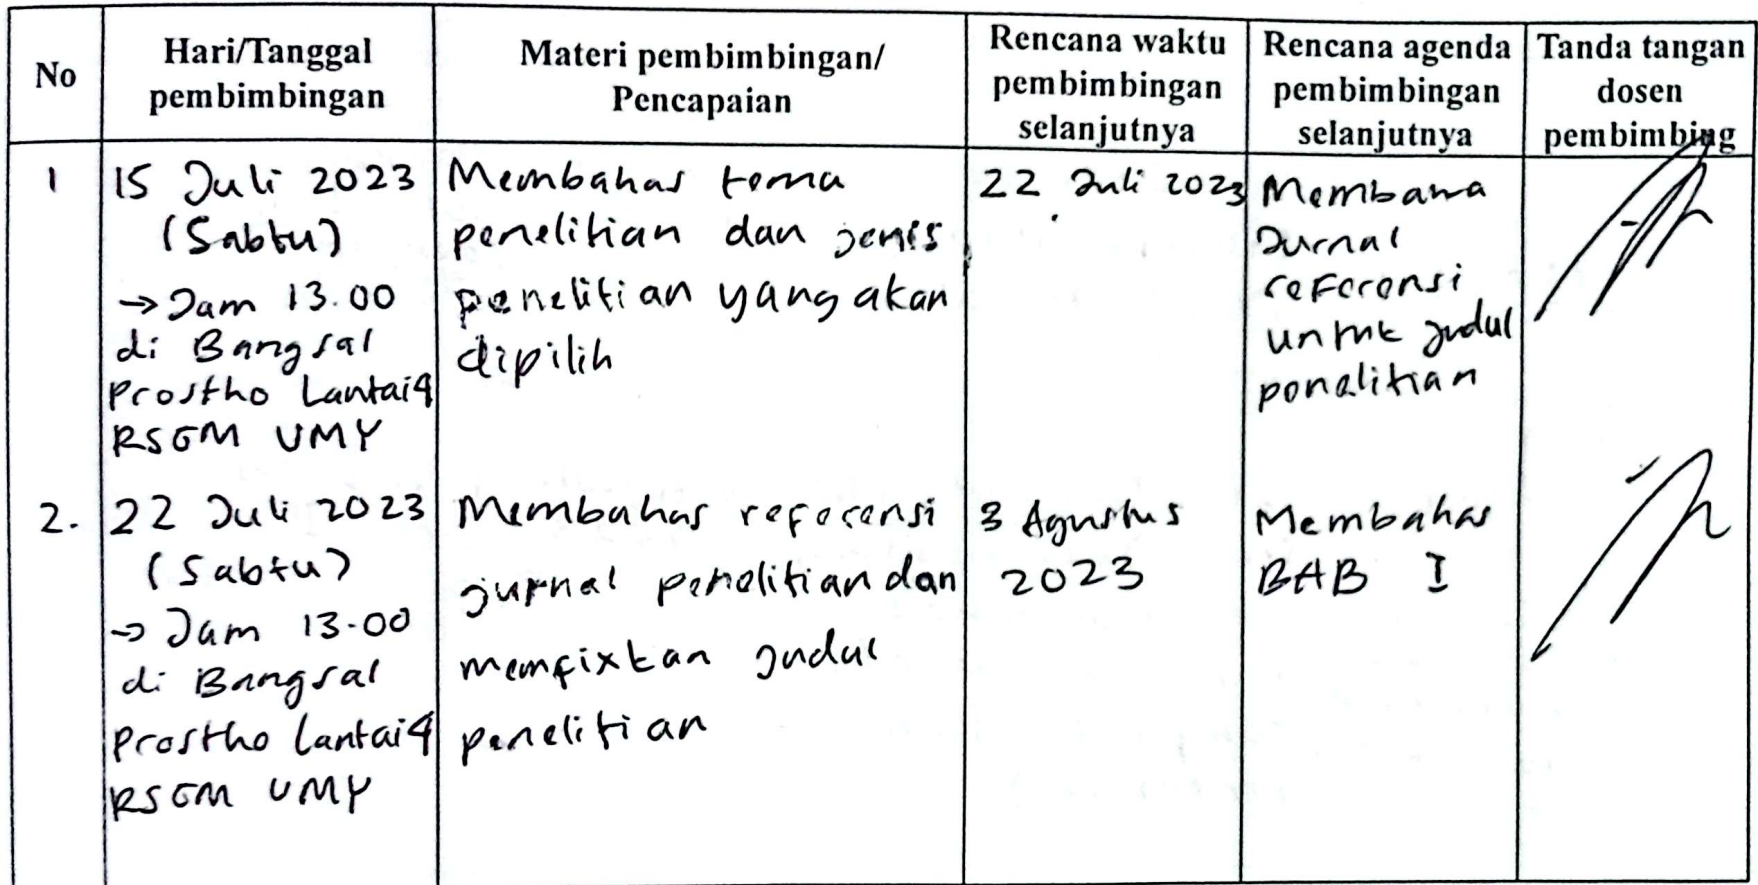 No
Hari/Tanggal
pembimbingan
Materi pembimbingan/
Pencapaian
Rencana waktu
pembimbingan
selanjutnya
Rencana agenda
pembimbingan
selanjutnya
Tanda tangan
dosen
pembimbing
1
15 Juli 2023
(Sabtu)
→ Jam 13.00
di Bangsal
Prostho Lantai 4
RSGM UMY
Membahas tema
penelitian dan jenis
penelitian yang akan
dipilih
22 Juli 2023
Membawa
Jurnal
referensi
untuk judul
penelitian
2.
22 Juli 2023
(Sabtu)
→ Jam 13.00
di Bangsal
Prostho Lantai 4
RSGM UMY
Membahas referensi
jurnal penelitian dan
memfixkan judul
penelitian
3 Agustus
2023
Membahas
BAB I